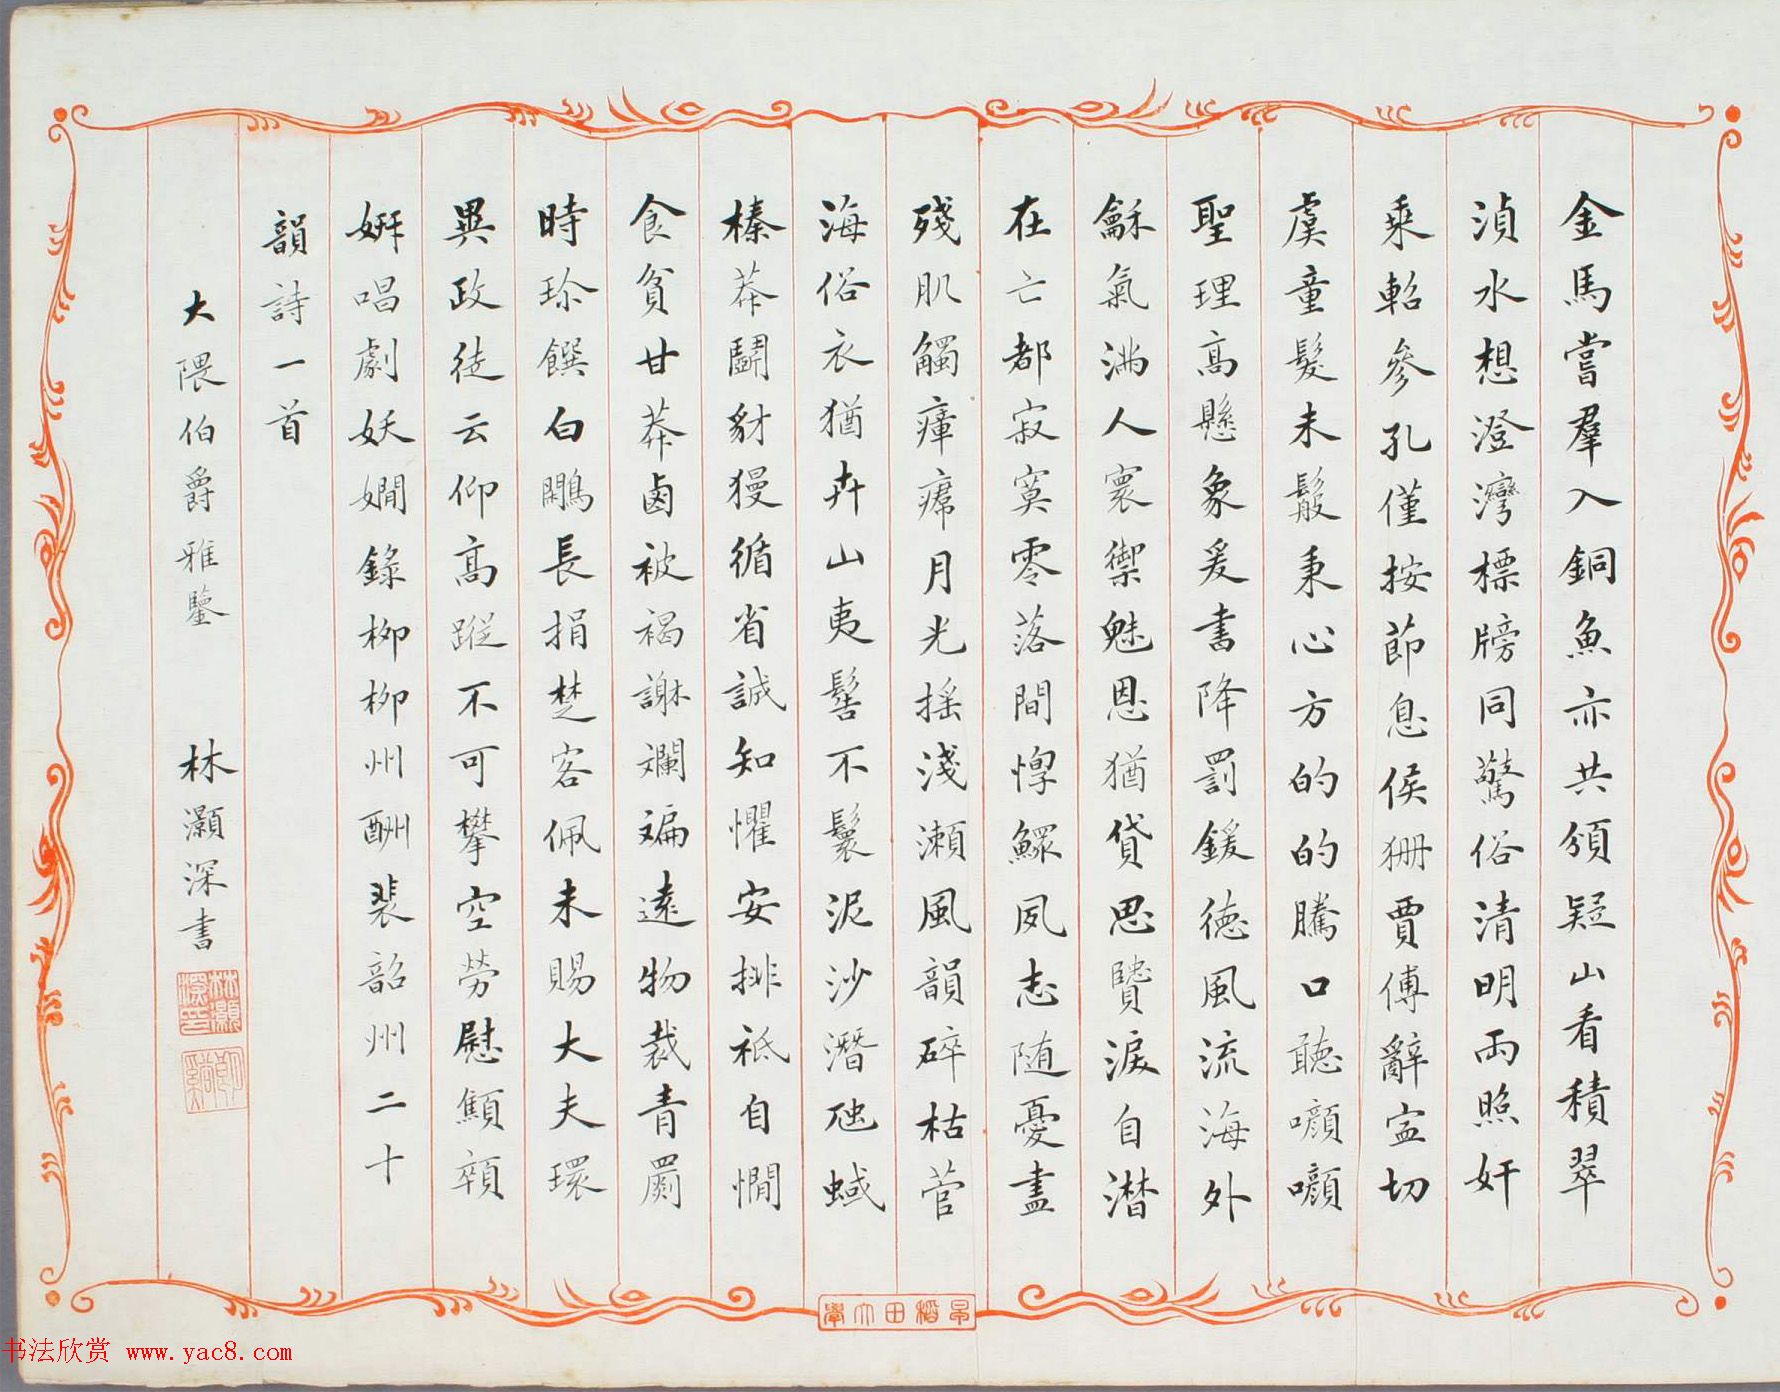 金馬嘗羣入銅魚亦共頒疑山看積翠
湞水想澄灣標牓同驚俗清明兩照奸
乘軺參孔僅按節息侯狦賈傅辭寍切
虞童髮未䰉秉心方的的騰口聽㘖㘖
聖理高懸象爰書降罰鍰德風流海外
龢氣滿人寰禦魅恩猶貸思賢淚自潸
在亡都寂寞零落間惸鰥夙志随憂盡
殘肌觸瘴㾕月光搖淺瀨風韻碎枯菅
海俗衣猶卉山夷髻不鬟泥沙潛虺蜮
榛莽鬬豺獌循省誠知懼安排祗自憪
食貧甘莽鹵被褐謝斕斒遠物裁青罽
時珍饌白鷳長捐楚客佩未賜大夫環
異政徒云仰高蹤不可攀空勞慰顦顇
妍唱劇妖嫺錄柳柳州酬裴韶州二十
韻詩一首
大隈伯爵雅鑒 林灝深書
林灝深印
书法欣赏 www.yac8.com